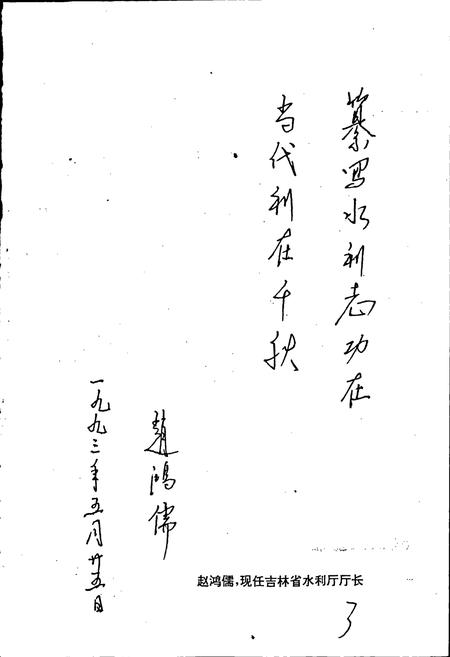 纂写水利志功在
当代利在千秋
趙鸿儒
一九九三年五月廿五日
赵鸿儒，现任吉林省水利厅厅长
3